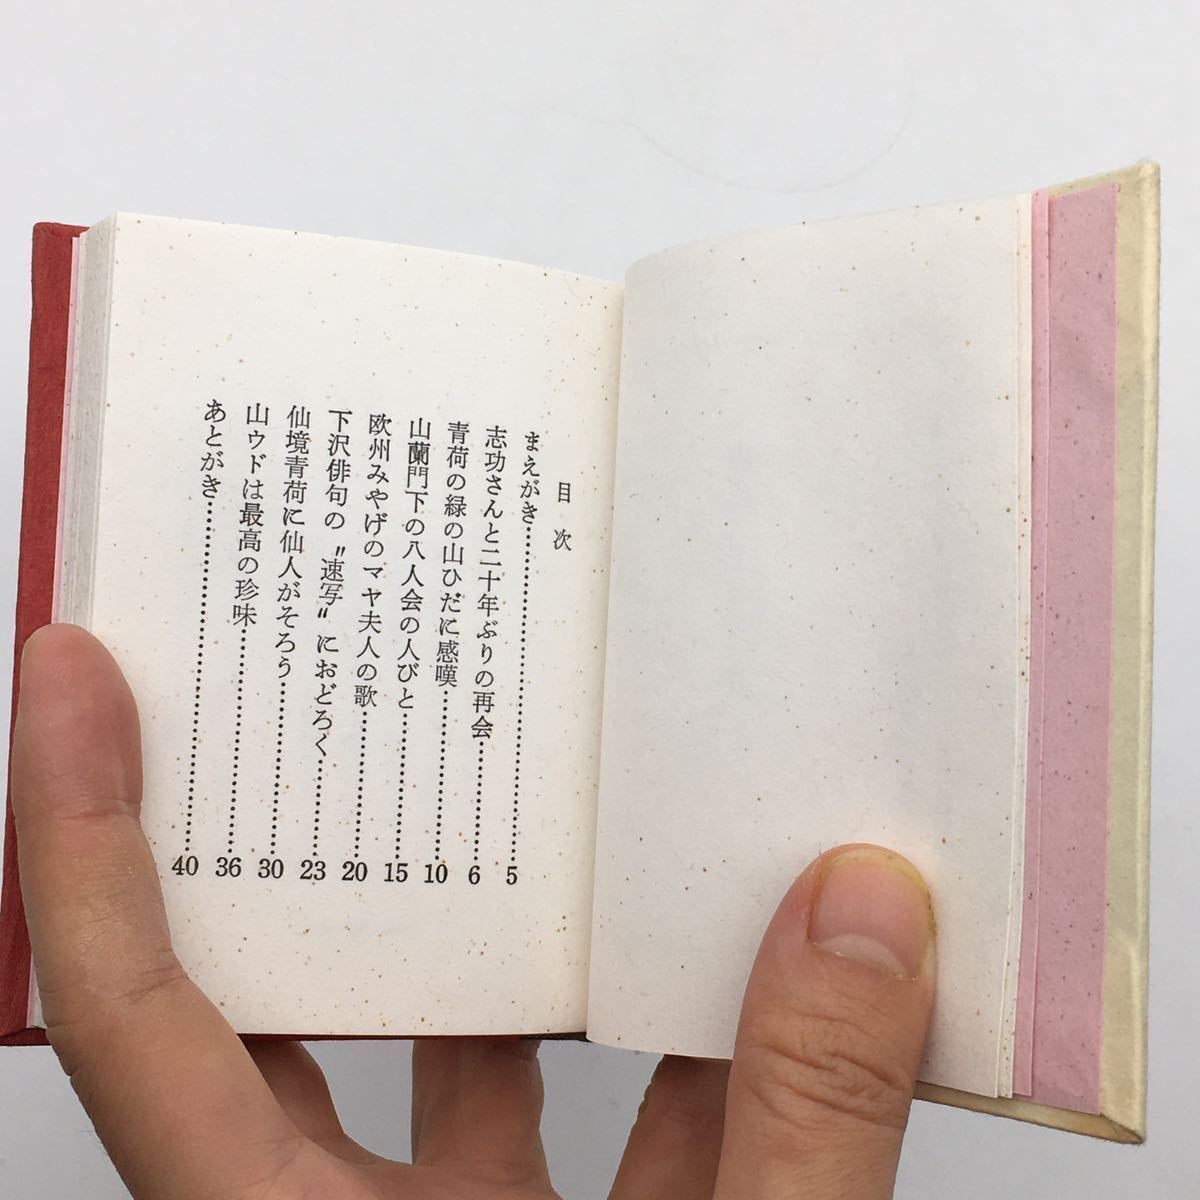 目次
まえがき…………5
志功さんと二十年ぶりの再会…………6
青荷の緑の山ひだに感嘆…………10
山蘭門下の八人会の人びと…………15
欧州みやげのマヤ夫人の歌…………20
下沢俳句の〝速写〟におどろく…………23
仙境青荷に仙人がそろう…………30
山ウドは最高の珍味…………36
あとがき…………40